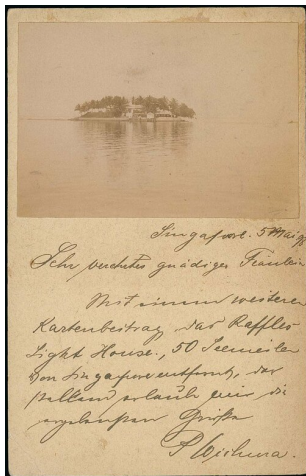 Singapore. 5 Mai
Sehr verehrtes gnädiges Fräulein
Mit einem weiteren
Kartenbeitrag, das Raffles
Light House, 50 Seemeilen
von Singapore entfernt, dar
stellend erlaubt mir die
ergebensten Grüße